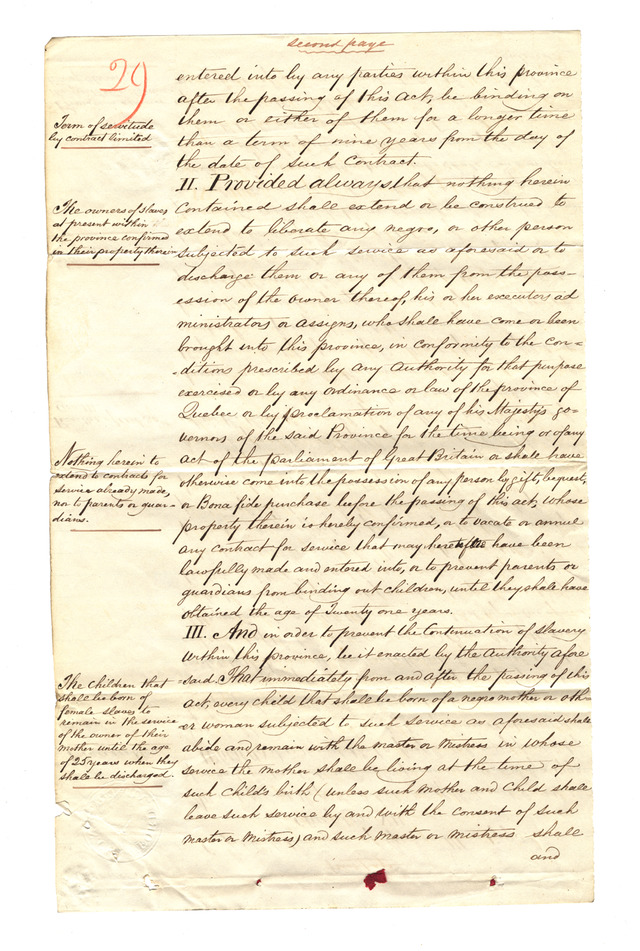 second page
29
entered into by any parties within this province
after the passing of this act, be binding on
them or either of them for a longer time
than a term of nine years from the day of
the date of such Contract.
Term of servitude
by contract limited
II. Provided always, that nothing herein
Contained shall extend or be construed to
extend to liberate any negro, or other person
subjected to such service as aforesaid or to
discharge them or any of them from the poss-
ession of the owner thereof, his or her executors ad
ministrators or assigns, who shall have come or been
brought into this province, in conformity to the con-
-ditions prescribed by any authority for that purpose
exercised or by any ordinance or law of the province of
Quebec or by proclamation of any of his Majestys go-
vernors of the said Province for the time being or of any
act of the parliament of Great Britain or shall have
otherwise come into the possession of any person by gift, bequest,
or Bona fide purchase before the passing of this act, whose
property therein is hereby confirmed, or to vacate or annul
any contract for service that may heretofore have been
lawfully made and entered into, or to prevent parents or
guardians from binding out children, until they shall have
obtained the age of Twenty one years.
The owners of slaves
at present within
the province confirmed
in their property therein
Nothing herein to
extend to contracts for
service already made,
nor to parents or guar-
dians.
III. And in order to prevent the Continuation of slavery
within this province, be it enacted by the Authority afore
-said. That immediately from and after the passing of this
act, every child that shall be born of a negro mother or oth-
er woman subjected to such service as aforesaid shall
abide and remain with the master or Mistress in whose
service the mother shall be living at the time of
such Child's birth (unless such Mother and Child shall
leave such service by and with the consent of such
master or Mistress) and such Master or Mistress shall
and
The Children that
shall be born of
female slaves to
remain in the service
of the owner of their
Mother until the age
of 25 years when they
shall be discharged.